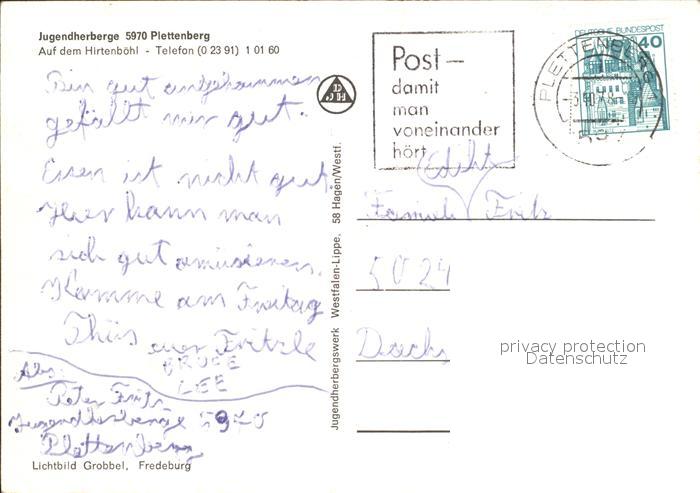 Jugendherberge 5970 Plettenberg
Auf dem Hirtenböhl - Telefon (0 23 91) 1 01 60
Bin gut angekommen
gefällt mir gut.
Essen ist nicht gut.
Hier kann man
sich gut amüsieren.
Komme am Freitag
Thüs euer Fritzle
BRUCE
LEE
Abs.
Peter Fritz
Jugendherberge 5970
Plettenberg
Lichtbild Grobbel, Fredeburg
Jugendherbergswerk Westfalen-Lippe, 58 Hagen/Westf.
DJH
Post –
damit
man
voneinander
hört
PLETTENBERG
DEUTSCHE BUNDESPOST
40
Familie Fritz
5024
privacy protection
Datenschutz